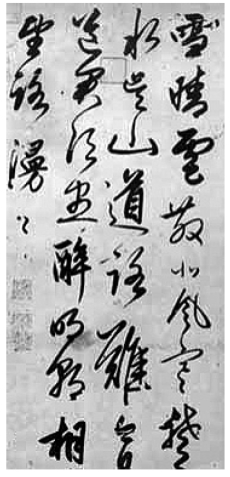 雪晴雲散北風寒楚
水吳山道路難今日
送君須盡醉明朝相
路漫〻